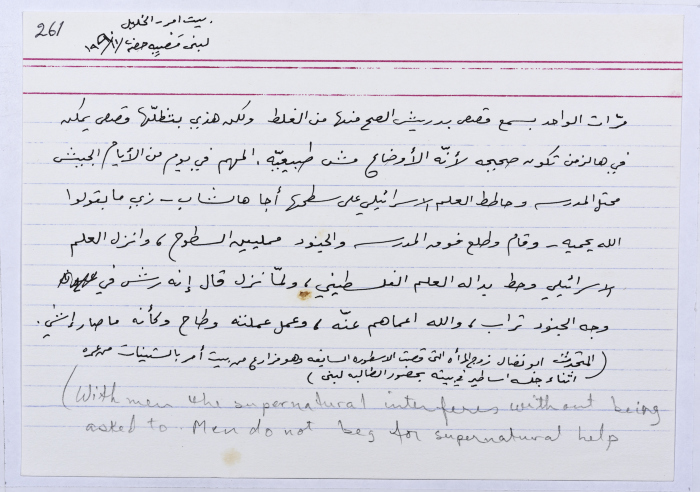 261
بيت امر - الخليل
لبنى
مرّات الواحد بسمع قصص بدريش الصح منها من الغلط ولكن هذي بتظلّها قصص يمكن
في هالزمن تكون صحيحه لأنّه الأوضاع مش طبيعيّه. المهم في يوم من الأيام الجيش
محتل المدرسه وحاطط العلم الاسرائيلي على سطحها أجا هالشاب - زي ما بقولوا
الله يحميه - وقام وطلع فوق المدرسه والجنود مليين السطوح، وانزل العلم
الاسرائيلي وحط بداله العلم الفلسطيني، ولمّا نزل قال إنه رش في
وجه الجنود تراب، والله اعماهم عنّه، وعمل عملته وطاح وكأنه ما صار إشي.
(المتحدث ابو نضال زوج المرأه التي قصت الاسطوره السابقه وهو مزارع من بيت أمر بالستينات من عمره
اثناء جلسه اساطير في بيته بحضور الطالبه لبنى)
(With men the supernatural interferes without being
asked to. Men do not beg for supernatural help